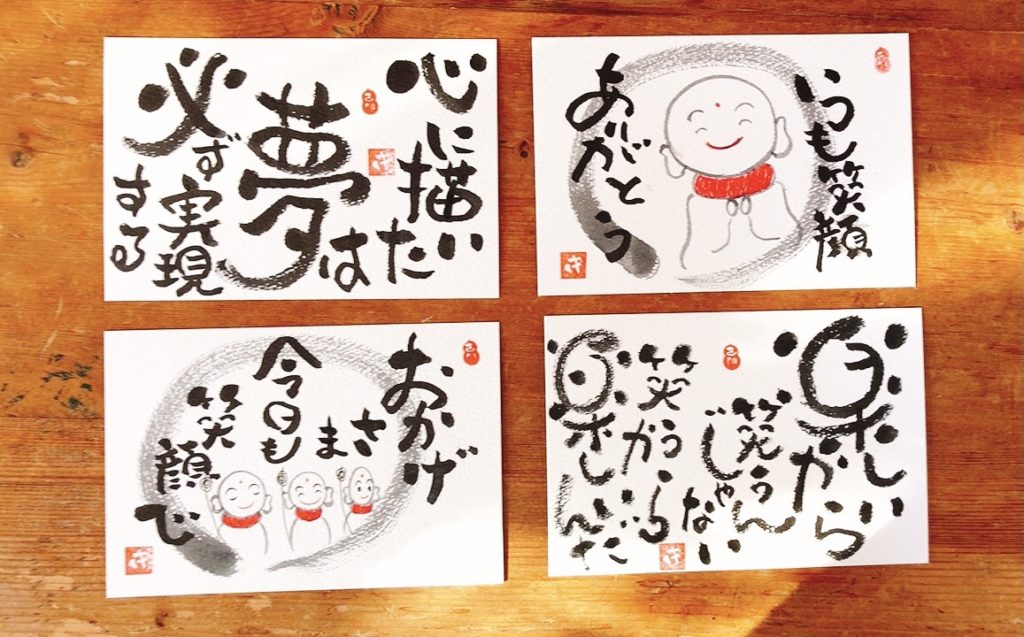 心に描いた
夢は
必ず実現
する
いつも笑顔
ありがとう
おかげ
さま
今日も
笑顔で
楽しいから
笑うん
じゃない
笑うから
楽しいんだ